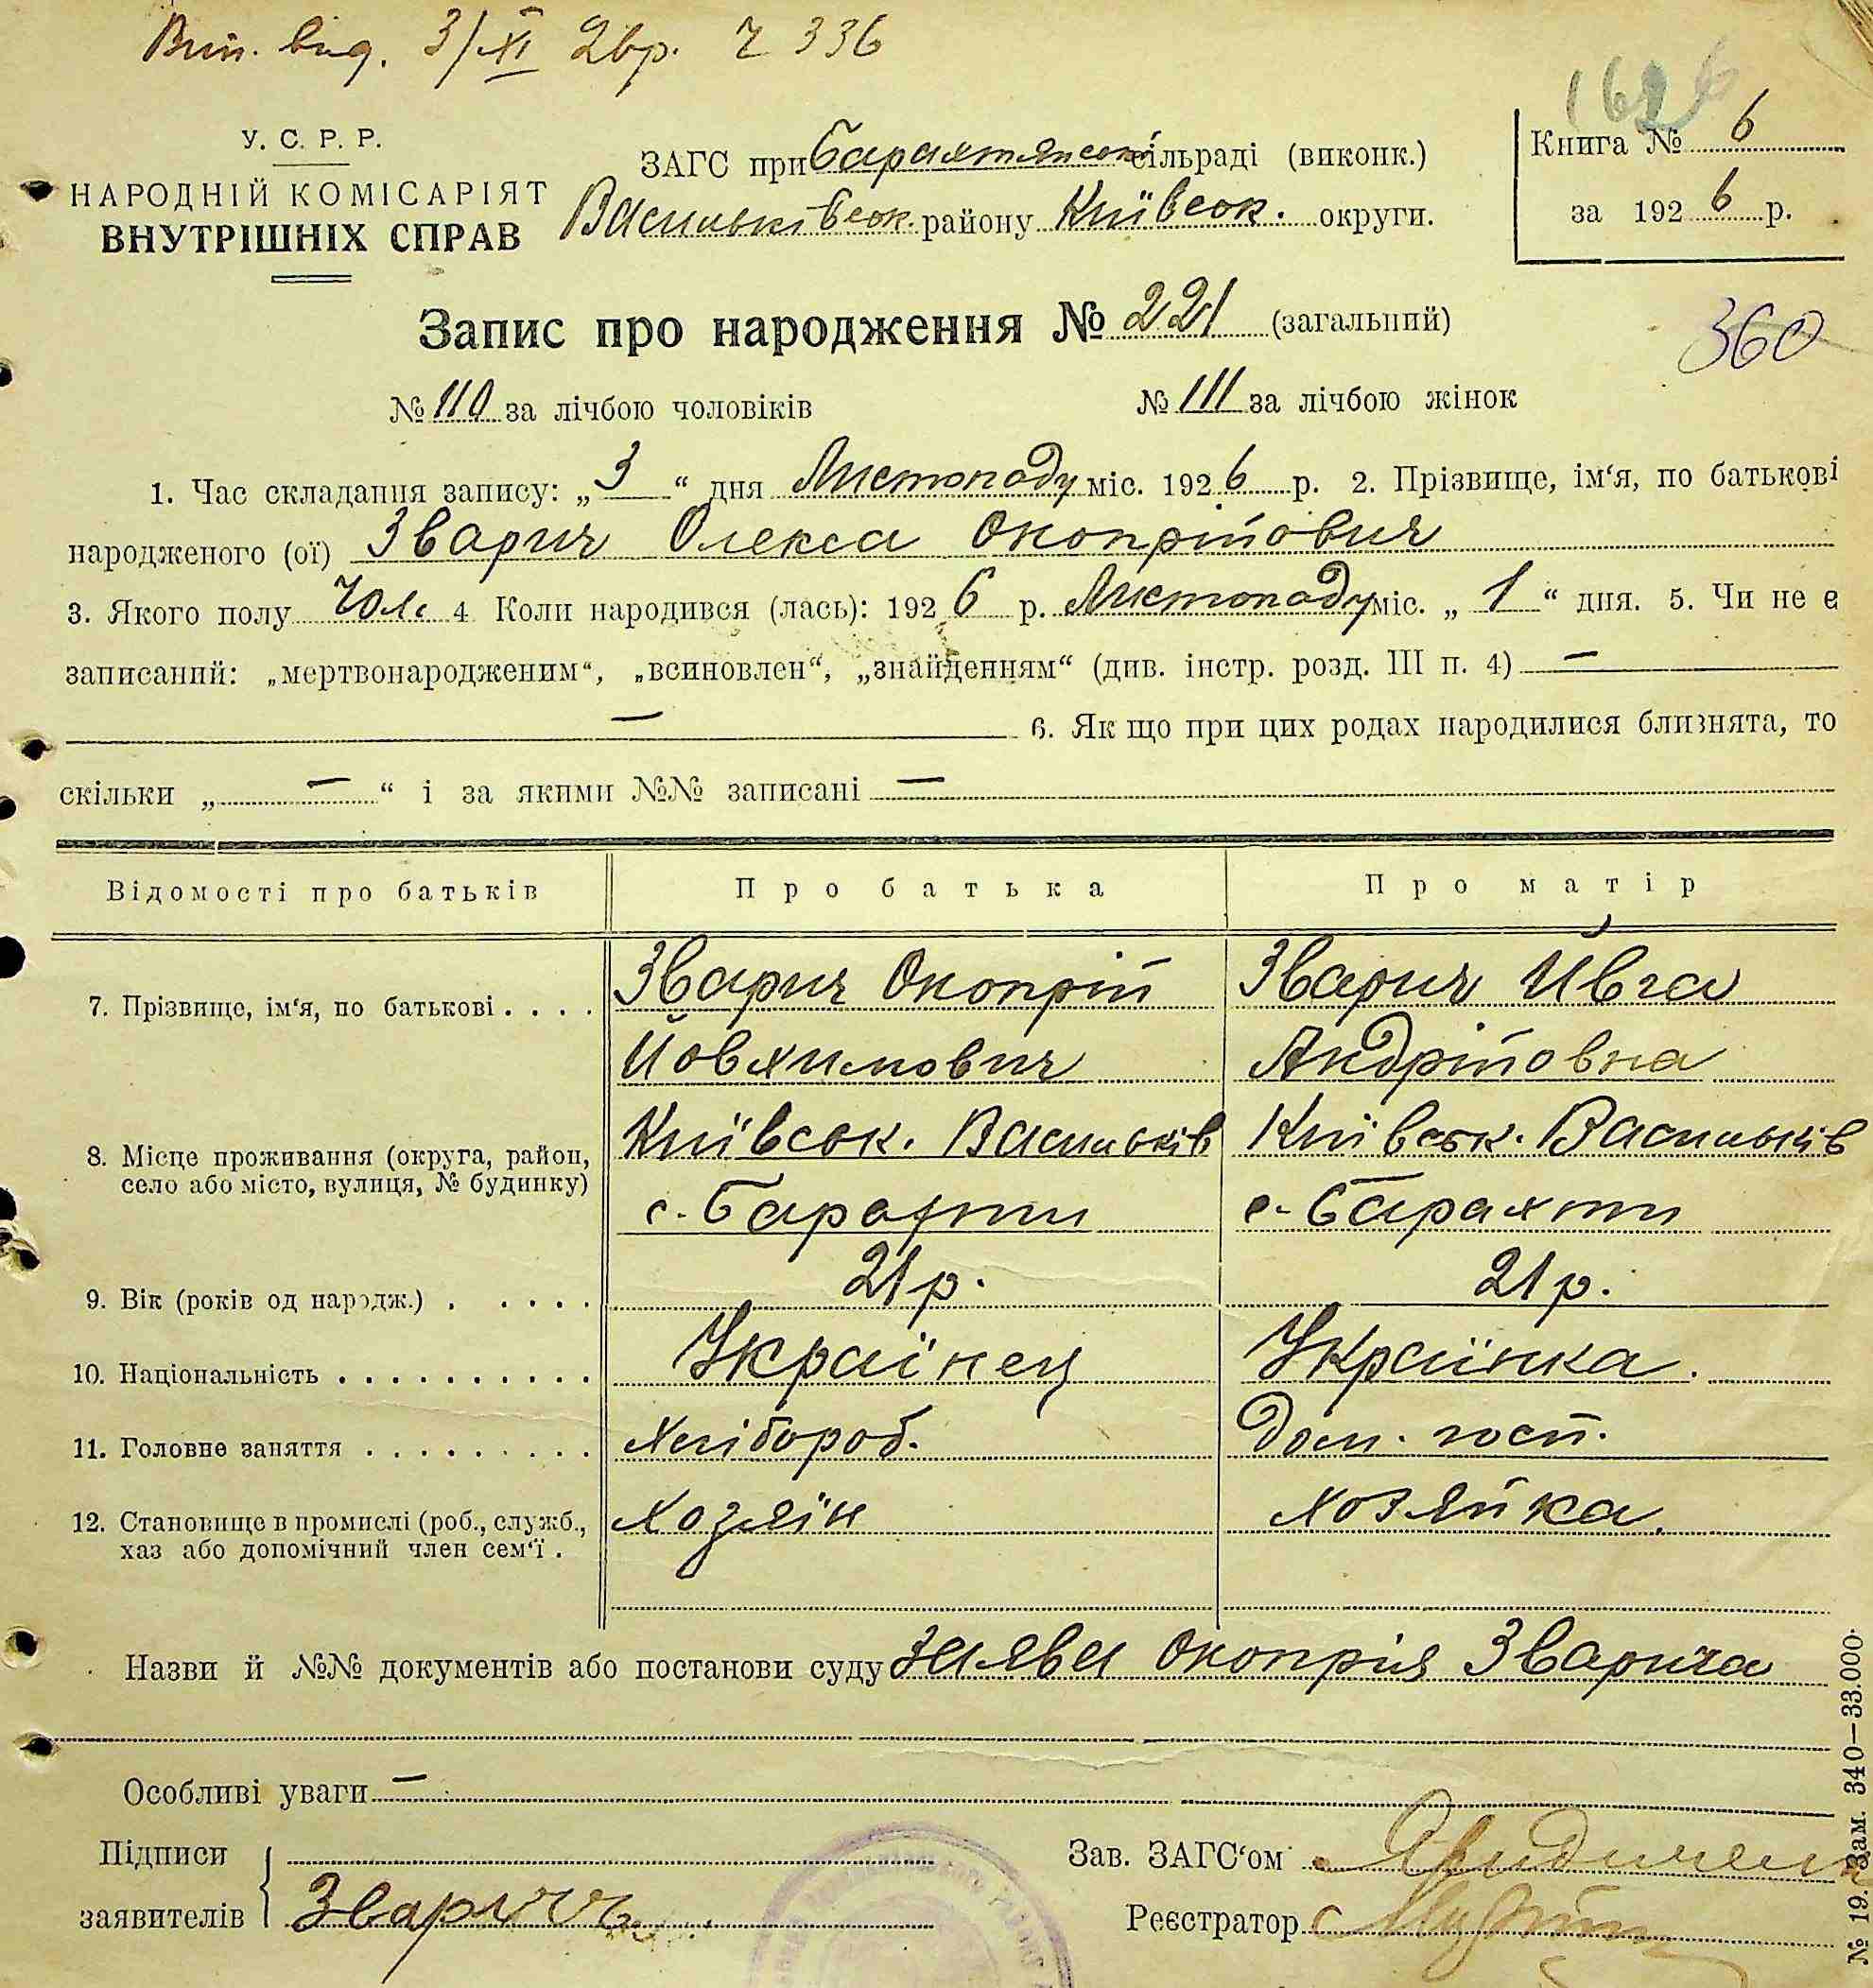 Вип. вид. 3/XI 26р. ч 336
1626
У. С. Р. Р.
НАРОДНІЙ КОМІСАРІЯТ
ВНУТРІШНІХ СПРАВ
ЗАГС при Барахтянськ сільраді (виконк.)
Васильківськ. району Київськ. округи.
Книга № 6
за 1926 р.
Запис про народження № 221 (загальний)
360
№ 110 за лічбою чоловіків № 111 за лічбою жінок
1. Час складання запису: „3“ дня Листопаду міс. 1926 р. 2. Прізвище, ім‘я, по батькові
народженого (ої) Зварич Олекса Окопрійович
3. Якого полу Чол. 4 Коли народився (лась): 1926 р. Листопаду міс. „1“ дня. 5. Чи не є
записаний: „мертвонародженим“, „всиновлен“, „знайденням“ (див. інстр. розд. III п. 4) —
— 6. Як що при цих родах народилися близнята, то
скільки „—“ і за якими №№ записані —
Відомості про батьків Про батька Про матір
7. Прізвище, ім‘я, по батькові . . . . Зварич Окопрій Зварич Ивга
Йовхимович Андрійовна
8. Місце проживання (округа, район, Київськ. Васильків Київськ. Васильків
село або місто, вулиця, № будинку) с. Барахти с. Барахти
9. Вік (років од народж.) . . . . . 21 р. 21 р.
10. Національність . . . . . . . . . . Українец Українка.
11. Головне заняття . . . . . . . . . Хлібороб. Дом. госп.
12. Становище в промислі (роб., служб., Хозяін Хозяйка.
хаз або допомічний член сем‘ї .
Назви й №№ документів або постанови суду Заява Окопрія Зварича
Особливі уваги —
Підписи
заявителів Зварич
Зав. ЗАГС‘ом
Реєстратор
№ 19. Зам. 340—33.000.